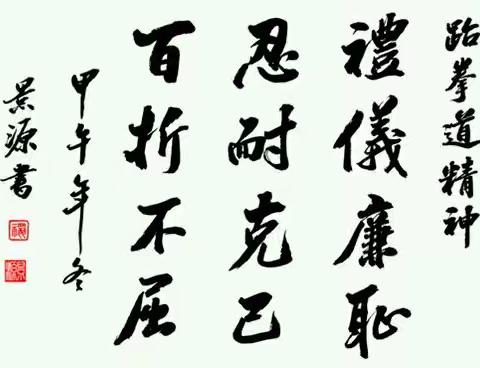 跆拳道精神
禮儀廉恥
忍耐克己
百折不屈
甲午年冬
景源書